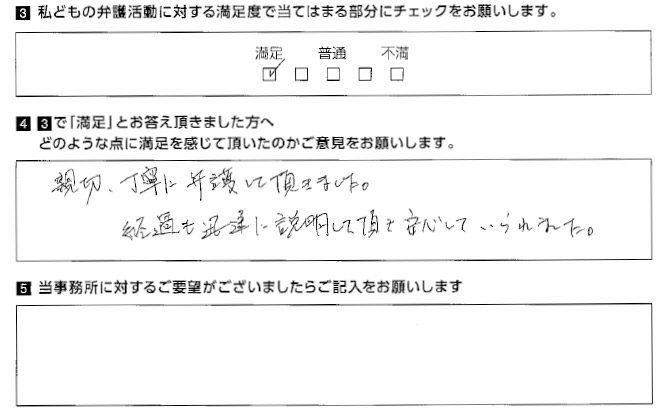 3 私どもの弁護活動に対する満足度で当てはまる部分にチェックをお願いします。
満足 普通 不満
4 3で「満足」とお答え頂きました方へ
どのような点に満足を感じて頂いたのかご意見をお願いします。
親切、丁寧に弁護して頂きました。
経過も迅速に説明して頂き安心していられました。
5 当事務所に対するご要望がございましたらご記入をお願いします